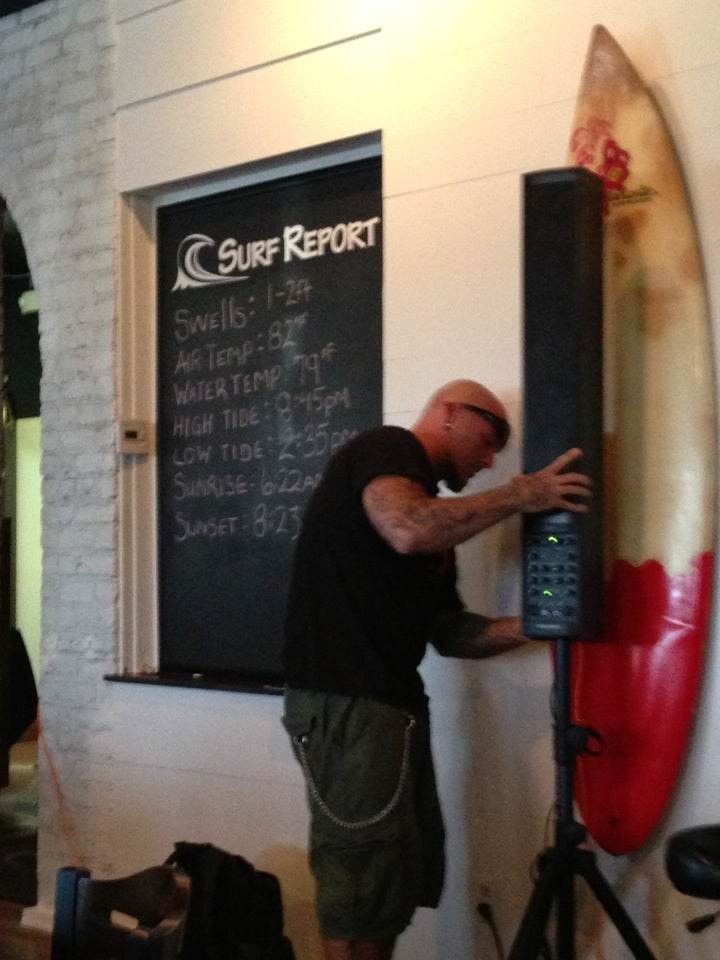 SURF REPORT
Swells: 1-2ft
AIR TEMP: 82°F
WATER TEMP 79°F
HIGH TIDE: 8:45pm
LOW TIDE: 2:35pm
SUNRISE: 6:22a
SUNSET: 8:23